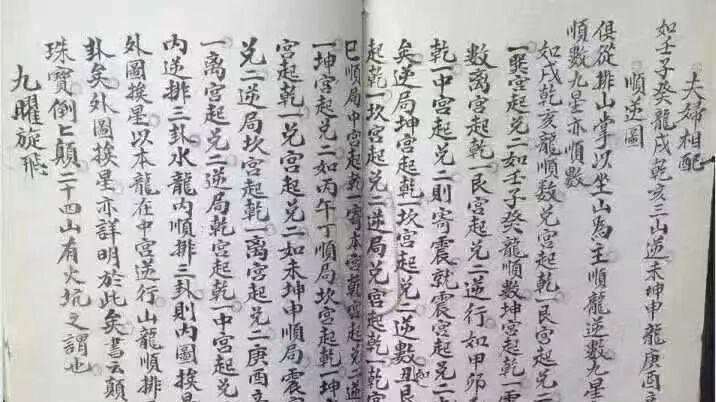 夫婦相配
如壬子癸龍戌乾亥三山逆未坤申龍庚酉
順逆圖
俱從排山掌以坐山為主順龍逆數九星
順數九星亦順數
如戌乾亥龍順數兌宮起乾一艮宮起兌二
一巽宮起兌二如壬子癸龍順數坤宮起乾一震
數離宮起乾一艮宮起兌二逆行如甲卯
乾一中宮起兌二則寄震就震宮起兌二
矣逆局坤宮起乾一坎宮起兌二逆數丑艮
起乾一坎宮起兌二逆局兌宮起乾一乾宮
巳順局中宮起乾一寄本宮乾宮起兌二逆
一坤宮起兌二如丙午丁順局坎宮起乾一坤
宮起乾一兌宮起兌二如未坤申順局震宮
兌二逆局坎宮起乾一離宮起兌二庚酉辛
一离宮起兌二逆局乾宮起乾一中宮起兌
內逆排三卦水龍內順排三卦則內圖挨星
外圖挨星以本龍在中宮逆行山龍順排
卦矣外圖挨星亦詳明於此矣書云顛
珠寶倒亡顛二十四山有火坑之謂也
九曜旋飛